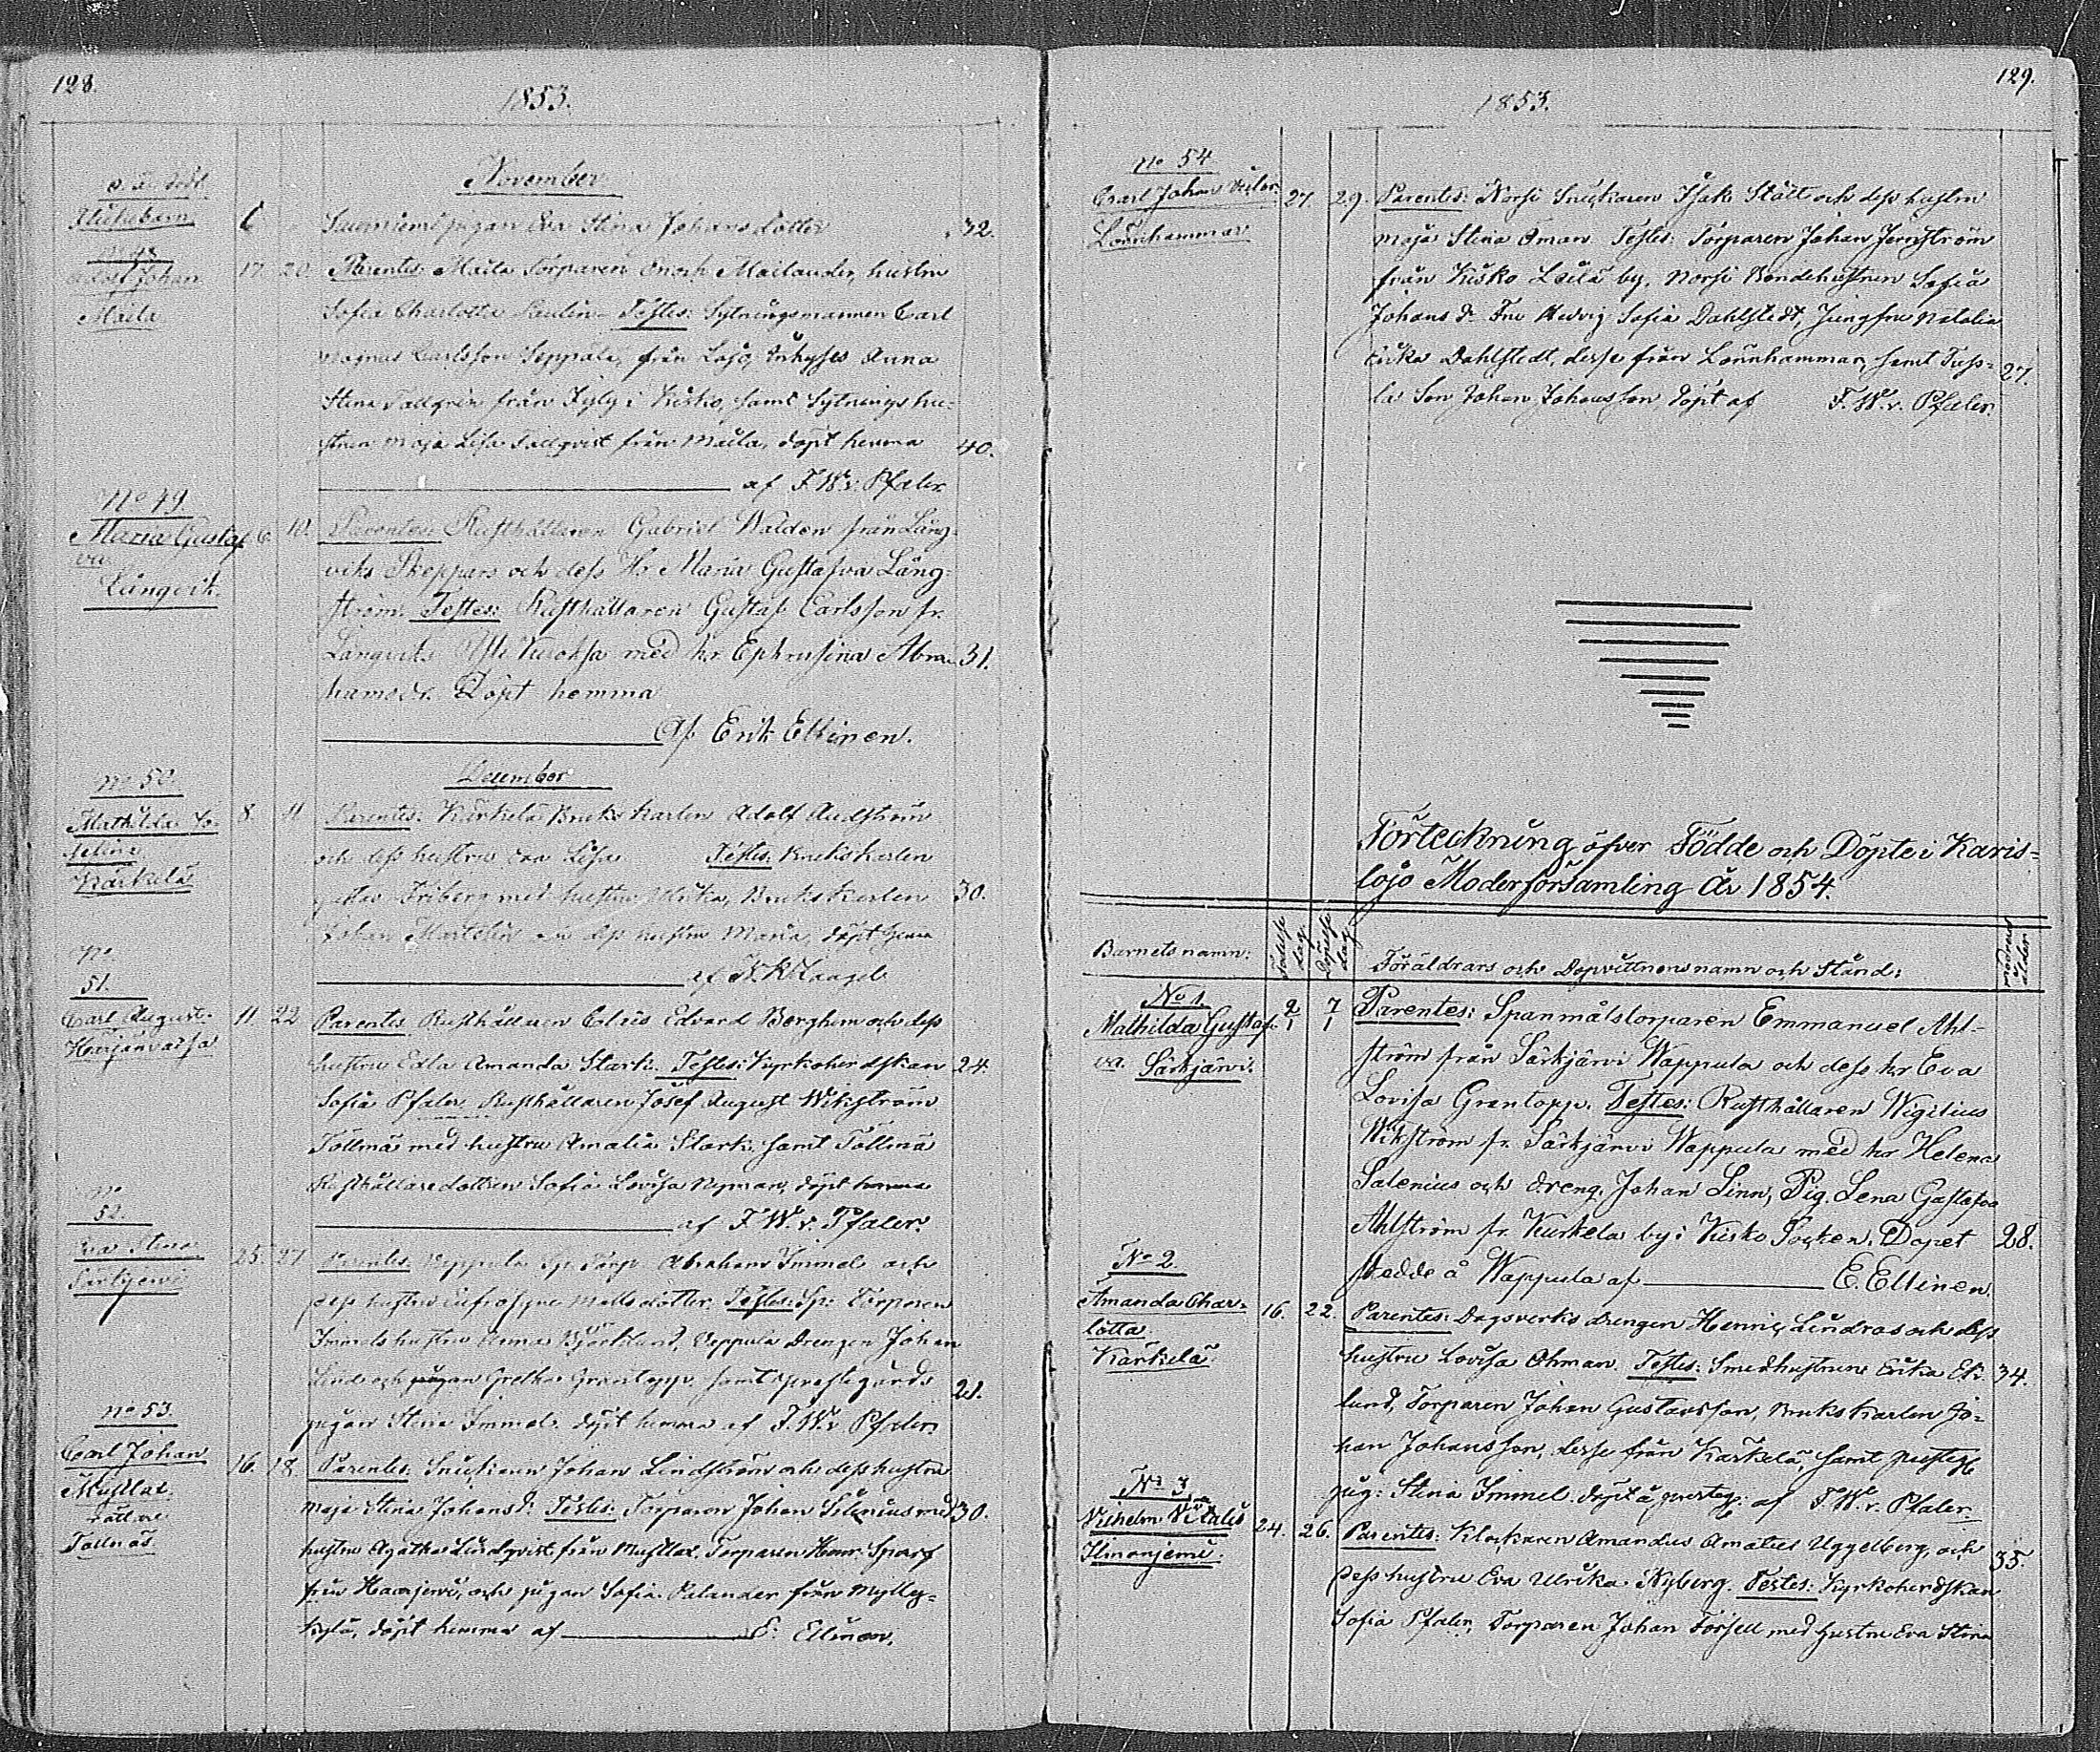 128.
1853.
November
6
Suurniemi pigan Eva Stina Johansdotter 32.
Adolf Johan
Maila
17. 20. Parentes: Maila Torparen Enoch Mailander, hustru
Sofia Charlotta Paulin. Testes: Sytningsmannen Carl
Magnus Carlsson Seppälä, från Lojo, Anna
Stina Tallgrén från i Kisko, samt Sytningshu-
strun Maja Lisa Tallqvist från Maila, döpt hemma 40.
af F. W. v. Pfaler.
No 49.
Maria Gustaf-
va
Långvik.
6. 10. Parentes: Rusthållaren Gabriel Walden från Lång-
viks Skeppars och dess Hr Maria Gustafva Lång-
ström. Testes: Rusthållaren Gustaf Carlsson fr.
Långviks med hr Ephrusina Abra- 31.
hamsdr. Döpt hemma
Af Erik Ellinen.
December
No 50.
Mathilda Jo-
sefina
Kärkelä
8. 11 Parentes: Kärkelä Brukskarlen Adolf Audström
och dess hustru Eva Lisa Testes: Brukskarlen
Gustav Friberg med hustru Ulrika, Brukskarlen 30.
Johan Martelin och dess hustru Maria, döpt hema
af
No
51.
Carl August.
Harjanvatsa
11. 22 Parentes Rusthållaren Elis Edvard Berghem och dess
hustru Edla Amanda Stark. Testes: Kyrkoherdskan 24.
Sofia Pfaler Rusthållaren Josef August Wikström
Tallnä med hustru Amalia Stark samt Tallnä
Rusthållaredottren Sofia Lovisa Nyman, döpt hemma
af F. W. v. Pfaler.
No
52.
Eva Stina
Särkijervi
25. 27 Parentes. Vappula Sp. Torp. Abraham Immel och
dess hustru Eufrosyne Matts dotter. Testes: Sp: Torparen
Immels hustru Anna Björklund, Vappula Drengen Johan
Lind och pigan Gretha Grantopp. samt Prestegårds 21.
pigan Stina Immel. döpt hemma af F. W. v. Pfaler
No 53.
Carl Johan
Mustlax.
Tallnäs.
16. 18. Parentes: Snickaren Johan Lindström och dess hustru
Maja Stina Johansdr. Testes: Torparen Johan Silenius med 30.
hustru Agatha Lindqvist från Mustlax, Torparen Henr. Sparf
från Haarjervi, och pigan Sofia Palander från Mylly-
kylä, döpt hemma af E. Ellinen.
129.
1853.
No 54
Carl Johan
Lönnhammar
27 29. Parentes: Norsi Snickaren Isak Stält och dess hustru
Maja Stina Öman Testes: Torparen Johan Jernström
från Kisko Leilä by, Norsi Bondehustrun Sofia
Johans dr Fru Hedvig Sofia Dahlstedt, Jungfru Natalia
Erika Dahlstedt, desse från Lönnhammar, samt 27.
Son Johan Johansson, döpt af F. W. v. Pfaler.
Förteckning öfver Födde och Döpte i Karis-
lojo Moderförsamling År 1854.
Barnets namn: Födelse dag Döpelse dag Föräldrars och Dopvittnens namn och Stånd: modrens ålder
No 1.
Mathilda Gustaf-
va. Särkjärvi.
2/1 7/1 Parentes: Spanmålstorparen Emmanuel Ahl-
ström från Särkjärvi Wappula och dess hr Eva
Lovisa Grantopp. Testes: Rusthållaren Wigilius
Wikström fr. Särkjärvi Wappula med hr Helena
Salenius och dreng. Johan Linn, Pig. Lena Gustafva
Ahlström fr. Kurkela by i Kisko Socken. Döpet 28.
skedde å Wappula af E. Ellinen.
No 2.
Amanda Char-
lotta.
Kärkelä
16. 22. Parentes: Dagsverks drengen Henric Lindros och dess
hustru Lovisa Öhman. Testes: Smedhustrun Erika Ek- 34.
lund, Torparen Johan Gustavsson, Brukskarlen Jo-
han Johansson, desse från Kärkelä, samt prestegs
pig: Stina Immel. döpt å presteg: af F. W. v. Pfaler.
No 3
Vilhelm Vitalis
Ilmonjemi.
24. 26. Parentes: Klockaren Amandus Amatus Uggelberg, och
dess hustru Eva Ulrika Nyberg. Testes: Kyrkoherdskan 35.
Sofia Pfaler, Torparen Johan Forsell med hustru Eva Stina